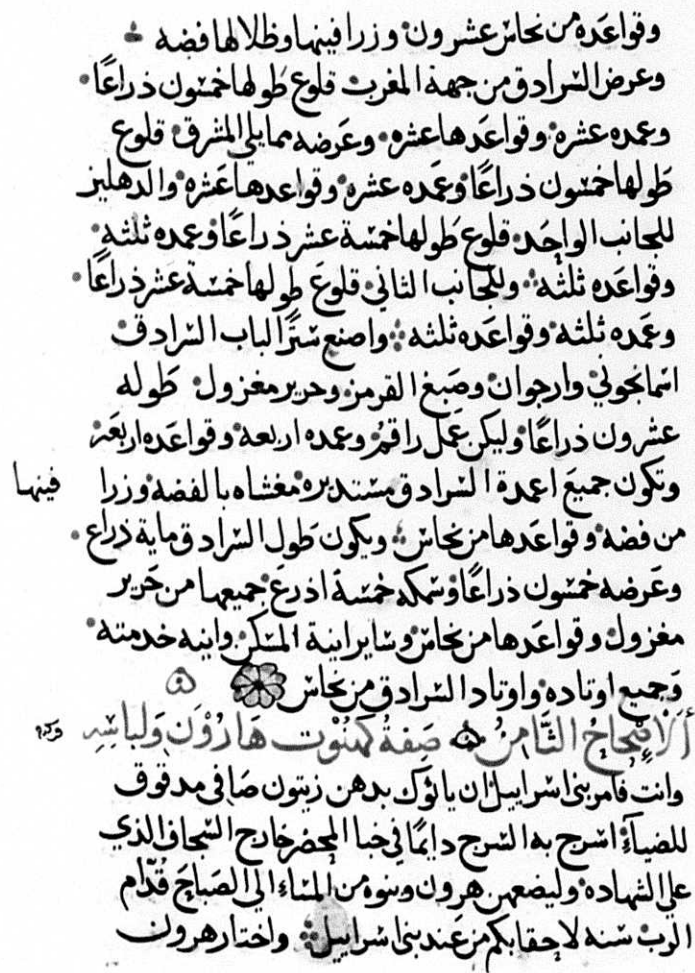 وقواعده من نحاس عشرون وزرافينها وظلالها فضه
وعرض السرادق من جهة المغرب قلوع طولها خمسون ذراعًا
وعمده عشره وقواعدها عشره وعرضه مما يلي المشرق قلوع
طولها خمسون ذراعًا وعمده عشره وقواعدها عشره والدهليز
للجانب الواحد قلوع طولها خمسة عشر ذراعًا وعمده ثلثه
وقواعده ثلثه وللجانب الثاني قلوع طولها خمسة عشر ذراعًا
وعمده ثلثه وقواعده ثلثه واصنع سترًا لباب السرادق
اسمانجوني وارجوان وصبغ القرمز وحرير مغزول طوله
عشرون ذراعًا وليكن عمل راقم وعمده اربعه وقواعده اربعة
وتكون جميع اعمدة السرادق مستديره مغشاه بالفضه وزرا فينها
من فضه وقواعدها من نحاس ويكون طول السرادق ماية ذراع
وعرضه خمسون ذراعًا وسمكه خمسة اذرع جميعها من حرير
مغزول وقواعدها من نحاس وساير انية المسكن وانيه خدمته
وجميع اوتاده واوتاد السرادق من نحاس
الاصحاح الثامن صفة كهنوت هارون ولباسه
وانت فامر بني اسراييل ان ياتوك بدهن زيتون صافي مدقوق
للضياء اسرج به السرج دايمًا في خبا المحضر خارج السجاف الذي
علي الشهاده وليضعهن هرون وبنوه من المساء الي الصباح قدّام
الرب سنه لاحقابكم من عند بني اسراييل واختار هرون